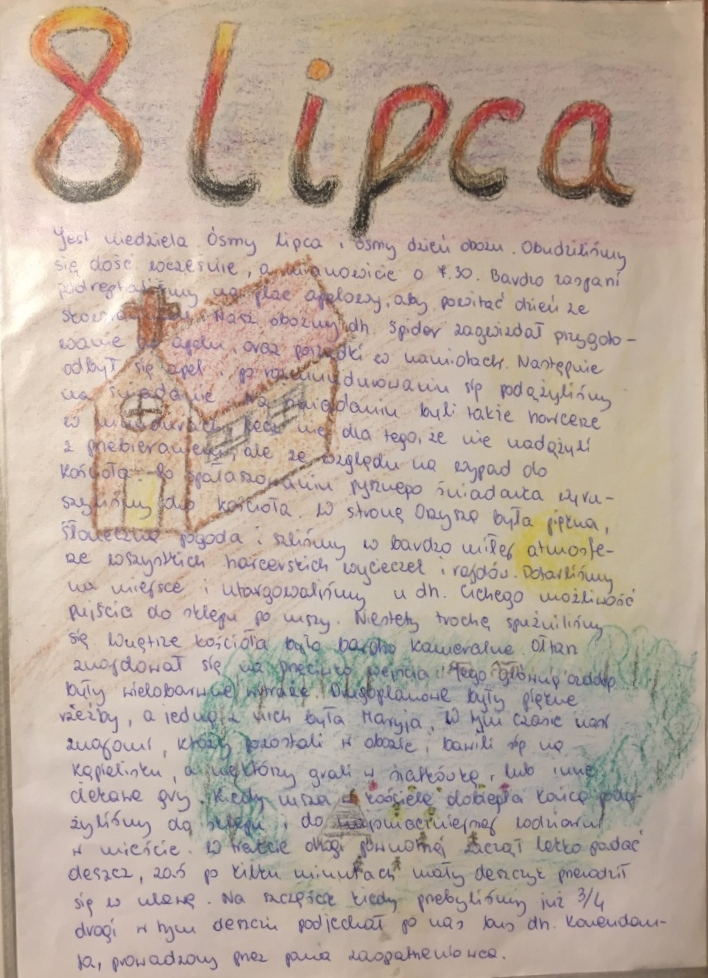 8 lipca
Jest niedziela ósmy lipca i ósmy dzień obozu. Obudziliśmy
się dość wcześnie, a mianowicie o 7.30. Bardzo zaspani
podreptaliśmy na plac apelowy, aby powitać dzień ze
Nasz obozny dh. Spider zagwizdał przygoto-
wanie do apelu, oraz porządki w namiotach. Następnie
odbył się apel po rozmundurowaniu się podążyliśmy
na śniadanie. Na śniadaniu byli także harcerze
w mundurach, lecz nie dla tego, że nie nadążyli
z przebieraniem, ale ze względu na wypad do
kościoła. Po spałaszowaniu pysznego śniadanka wyru-
szyliśmy do kościoła w stronę Orzysza była piękna,
słoneczna pogoda i szliśmy w bardzo miłej atmosfe-
rze wszystkich harcerskich wycieczek i rajdów. Dotarliśmy
na miejsce i utargowaliśmy u dh. Cichego możliwość
pujścia do sklepu po mszy. Niestety trochę spużniliśmy
się. Wnętrze kościoła było bardzo kameralne. Ołtarz
znajdował się na przeciwko wejścia i jego główną ozdobą
były wielobarwne witraże. Drugoplanowe były piękne
rzeźby, a jedną z nich była Maryja. W tym czasie nasi
znajomi, którzy pozostali w obozie, bawili się na
kąpielisku, a niektórzy grali w siatkówkę, lub inne
ciekawe gry. Kiedy msza w kościele dobiegła końca podą-
żyliśmy do sklepu i do najsmaczniejszej lodziarni
w mieście. W trakcie drogi powrotnej zaczął lekko padać
deszcz, zaś po kilku minutach mały deszczyk przerodził
się w ulewę. Na szczęście kiedy przebyliśmy już 3/4
drogi w tym deszczu podjechał po nas bus dh. Komendan-
ta, prowadzony przez pana zaopatrzeniowca.